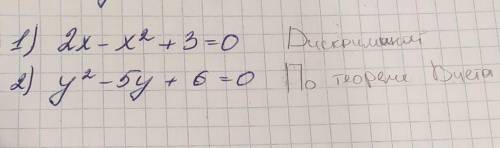 1) 2x - x² + 3 = 0 Дискриминант
2) y² - 5y + 6 = 0 По теореме Виета